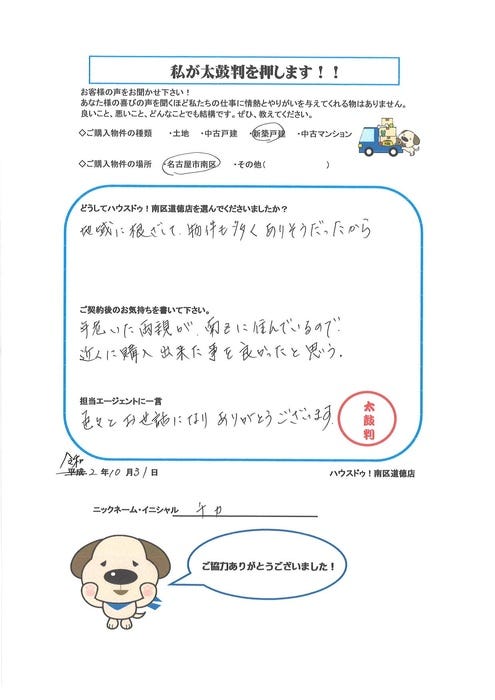 私が太鼓判を押します！！
お客様の声をお聞かせ下さい！
あなた様の喜びの声を聞くほど私たちの仕事に情熱とやりがいを与えてくれる物はありません。
良いこと、悪いこと、どんなことでも結構です。ぜひ、教えてください。
◇ご購入物件の種類　・土地　・中古戸建　・新築戸建　・中古マンション
◇ご購入物件の場所　・名古屋市南区　・その他(　　　　　　)
どうしてハウスドゥ！南区道徳店を選んでくださいましたか？
地域に根ざして、物件も多く ありそうだったから
ご契約後のお気持ちを書いて下さい。
年老いた両親が、南区に住んでいるので、
近くに購入出来た事を良かったと思う。
担当エージェントに一言
色々と お世話になり ありがとうございます。
太鼓判
令和
平成 2 年 10 月 31 日
ハウスドゥ！南区道徳店
ニックネーム・イニシャル　チカ
ご協力ありがとうございました！